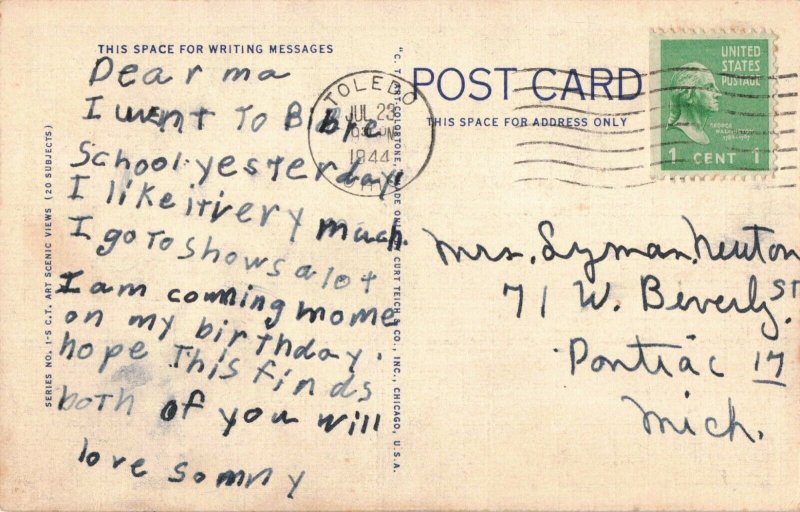 THIS SPACE FOR WRITING MESSAGES
Dear ma
I went To Bible
School yesterday
I like it very much.
I go To shows a lot
I am comming mome
on my birthday.
hope This finds
both of you will
love sonny
SERIES NO. 1-S C.T. ART SCENIC VIEWS (20 SUBJECTS)
"C. T. ART-COLORTONE" MADE ONLY BY CURT TEICH & CO., INC., CHICAGO, U.S.A.
TOLEDO
JUL 23
PM
1944
POST CARD
THIS SPACE FOR ADDRESS ONLY
UNITED
STATES
POSTAGE
GEORGE
WASHINGTON
1 CENT 1
Mrs. Lyman Newton
71 W. Beverly St.
Pontiac 17
Mich.